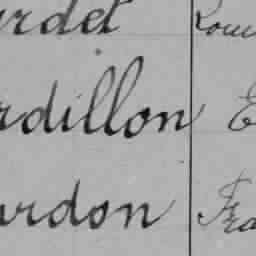 urdet Loui
rdillon E
urdon Fra